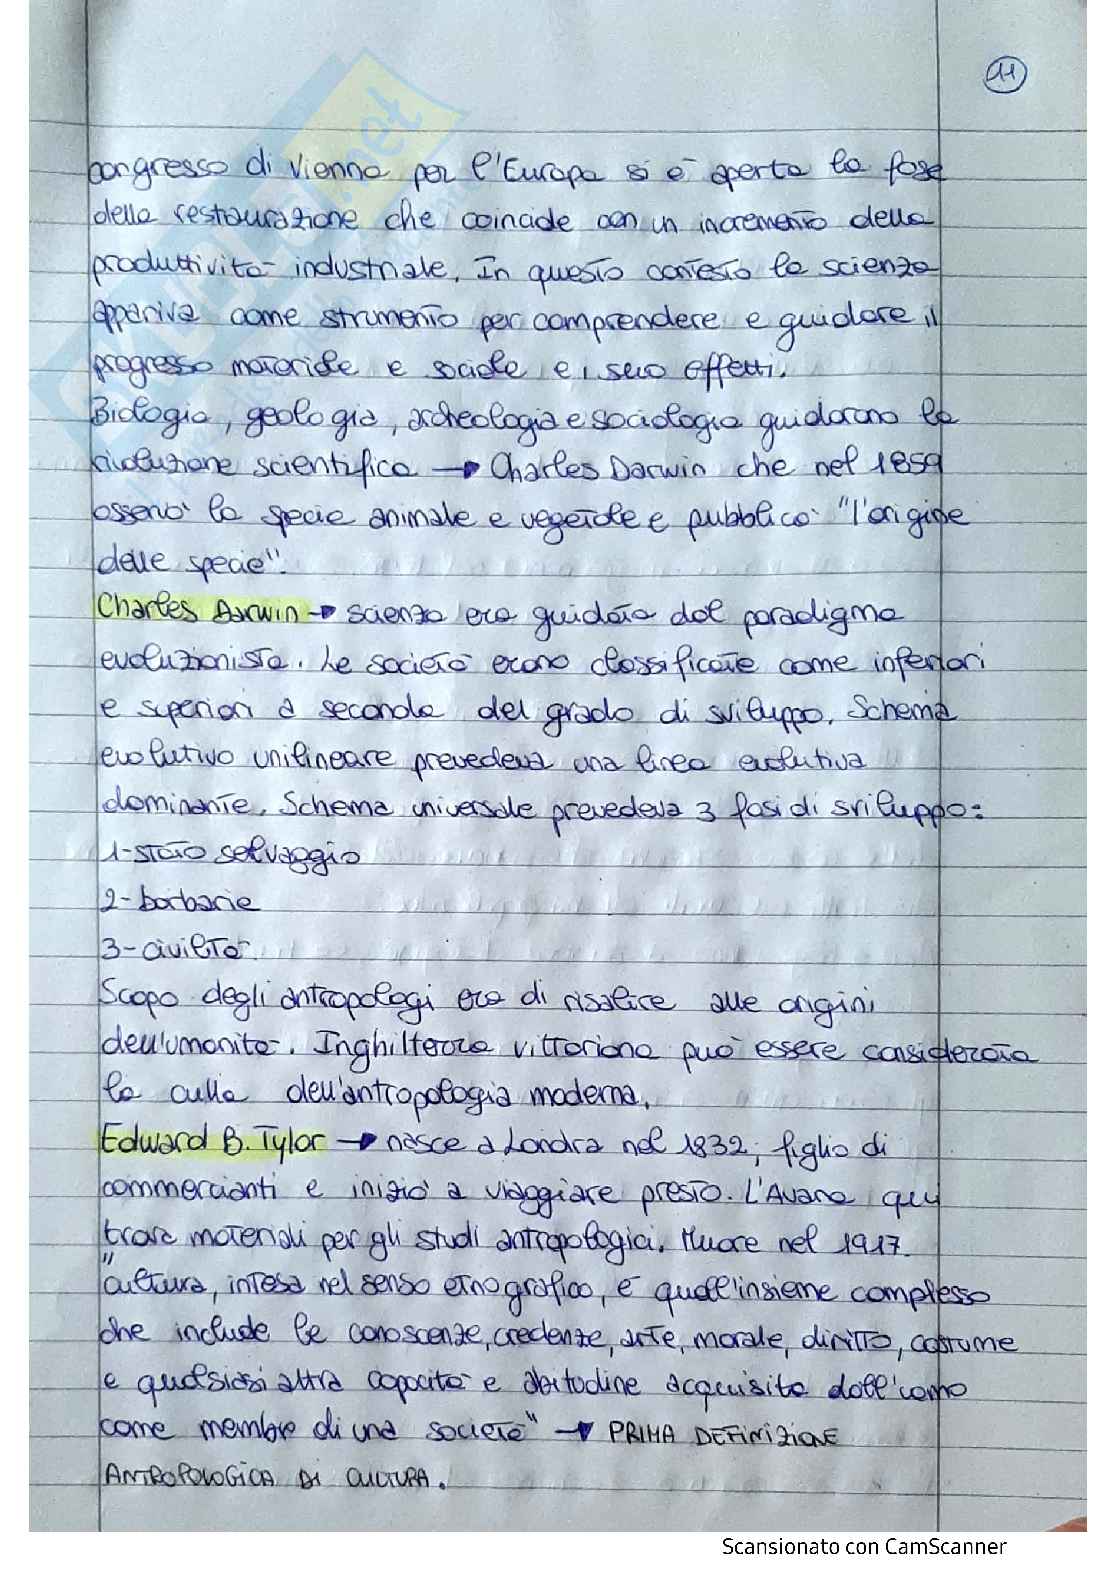 11
congresso di Vienna per l'Europa si è aperta la fase
della restaurazione che coincide con un incremento della
produttività industriale. In questo contesto la scienza
appariva come strumento per comprendere e guidare il
progresso materiale e sociale e i suoi effetti.
Biologia, geologia, archeologia e sociologia guidarono la
rivoluzione scientifica → Charles Darwin che nel 1859
osservò la specie animale e vegetale e pubblicò "l'origine
delle specie".
Charles Darwin → scienza era guidata dal paradigma
evoluzionista. Le società erano classificate come inferiori
e superiori a seconda del grado di sviluppo. Schema
evolutivo unilineare prevedeva una linea evolutiva
dominante. Schema universale prevedeva 3 fasi di sviluppo:
1-stato selvaggio
2-barbarie
3-civiltà.
Scopo degli antropologi era di risalire alle origini
dell'umanità. Inghilterra vittoriana può essere considerata
la culla dell'antropologia moderna.
Edward B. Tylor → nasce a Londra nel 1832, figlio di
commercianti e iniziò a viaggiare presto. L'Avana qui
trova materiali per gli studi antropologici. Muore nel 1917.
"cultura, intesa nel senso etnografico, è quell'insieme complesso
che include le conoscenze, credenze, arte, morale, diritto, costume
e qualsiasi altra capacità e abitudine acquisita dall'uomo
come membro di una società" → PRIMA DEFINIZIONE
ANTROPOLOGICA DI CULTURA.
Scansionato con CamScanner